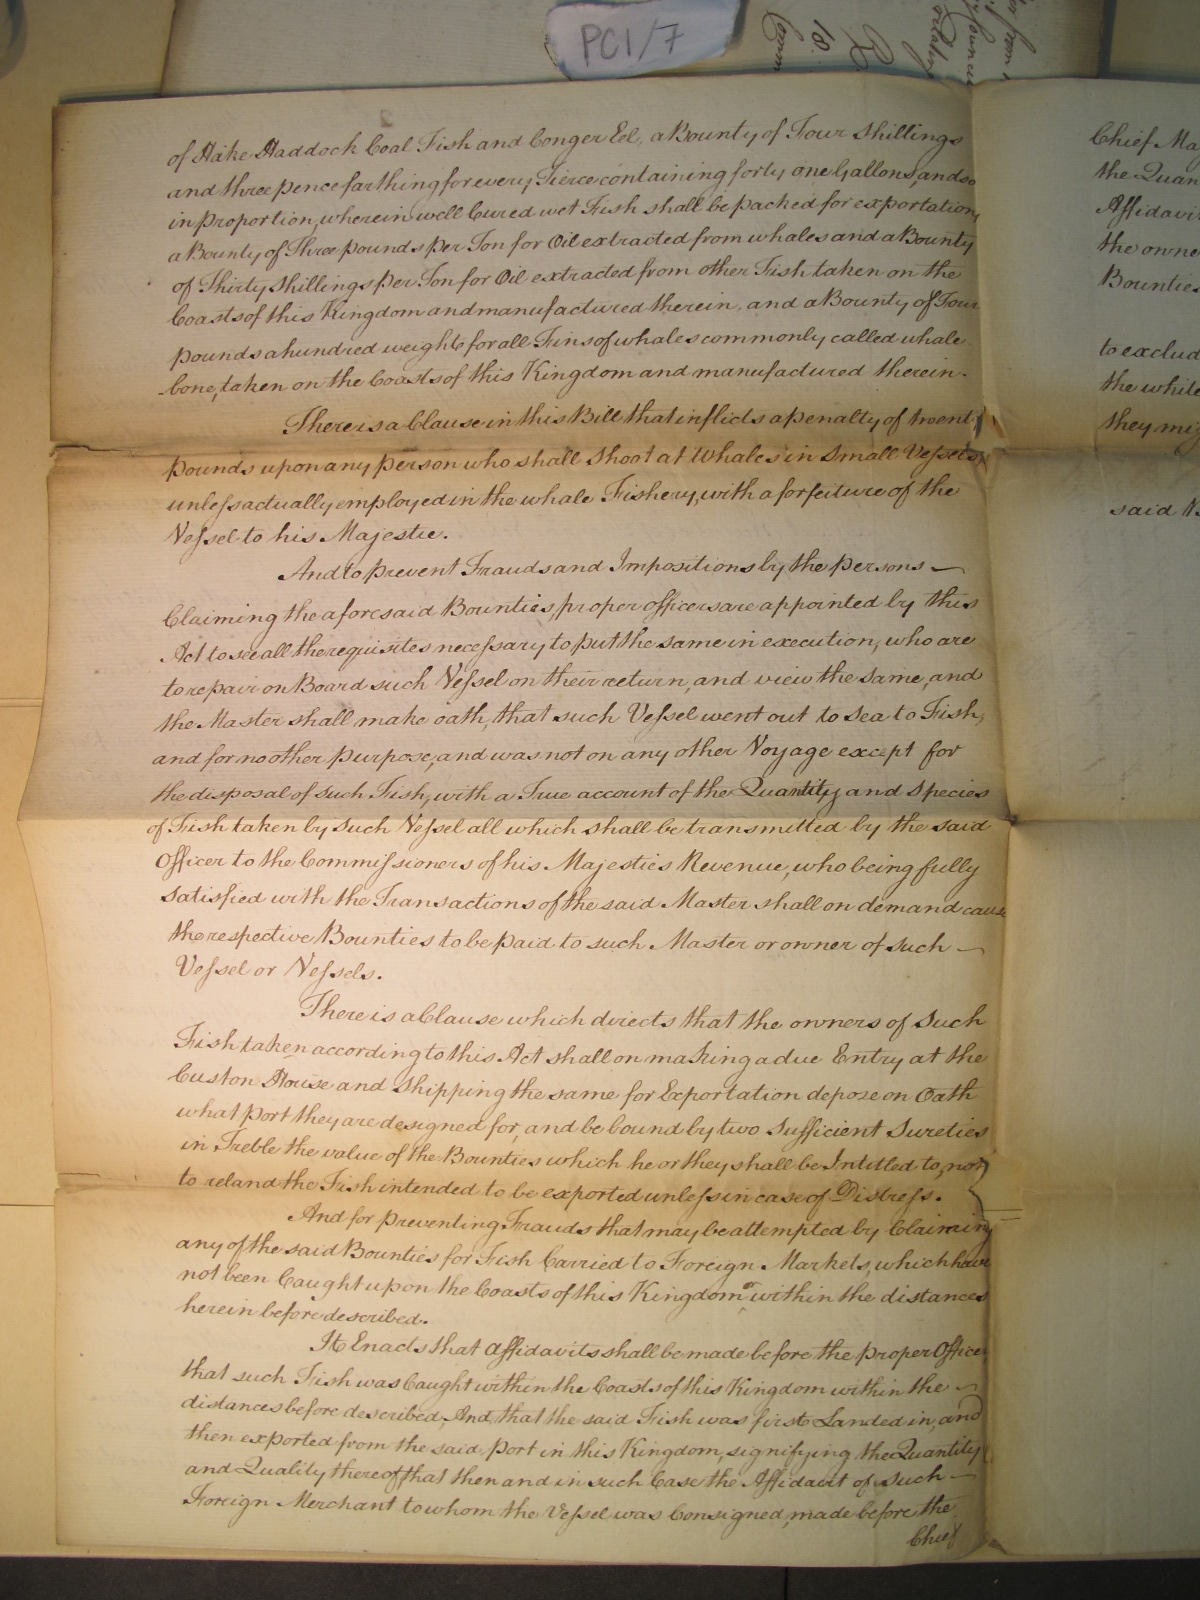 PC1/7
of Hake Haddock Coal Fish and Conger Eel, a Bounty of Four Shillings
and three pence farthing for every Tierce containing forty one Gallons, and so
in proportion, wherein well Cured wet Fish shall be packed for exportation,
a Bounty of Three pounds per Ton for Oil extracted from whales and a Bounty
of Thirty Shillings per Ton for Oil extracted from other Fish taken on the
Coasts of this Kingdom and manufactured therein, and a Bounty of Four
pounds a hundred weight for all Fins of whales commonly called whale
bone, taken on the Coasts of this Kingdom and manufactured therein.
There is a Clause in this Bill that inflicts a penalty of twenty
pounds upon any person who shall Shoot at Whales in Small Vessels,
unless actually employed in the whale Fishery, with a forfeiture of the
Vessel to his Majestie.
And to prevent Frauds and Impositions by the persons
Claiming the aforesaid Bounties, proper officers are appointed by this
Act to see all the requisites necessary to put the same in execution, who are
to repair on Board such Vessel on their return, and view the same, and
the Master shall make oath, that such Vessel went out to Sea to Fish,
and for no other purpose, and was not on any other Voyage except for
the disposal of such Fish, with a True account of the Quantity and Species
of Fish taken by such Vessel all which shall be transmitted by the said
Officer to the Commissioners of his Majesties Revenue, who being fully
satisfied with the Transactions of the said Master shall on demand cause
the respective Bounties to be paid to such Master or owner of such
Vessel or Vessels.
There is a Clause which directs that the owners of Such
Fish taken according to this Act shall on making a due Entry at the
Custon House and Shipping the same for Exportation depose on Oath
what port they are designed for, and be bound by two Sufficient Sureties
in Treble the value of the Bounties which he or they shall be Intitled to, not
to reland the Fish intended to be exported unless in case of Distress.
And for preventing Frauds that may be attempted by Claiming
any of the said Bounties for Fish Carried to Foreign Markets, which have
not been Caught upon the Coasts of this Kingdom or within the distances
herein before described.
It Enacts that Affidavits shall be made before the proper Officer,
that such Fish was Caught within the Coasts of this Kingdom within the
distances before described, And that the said Fish was first Landed in, and
then exported from the said port in this Kingdom, signifying the Quantity
and Quality thereof that then and in such Case the Affidavit of such
Foreign Merchant to whom the Vessel was Consigned, made before the
Chief
Chief
the
Affidavit
the
Bounties
to
the white
they
said